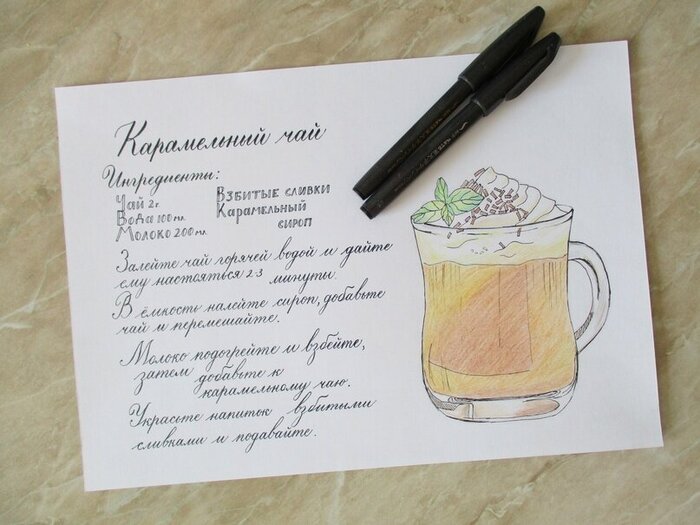 Карамельный чай
Ингредиенты:
Чай 2г
Вода 100мл
Молоко 200мл
Взбитые сливки
Карамельный
сироп
Залейте чай горячей водой и дайте
ему настояться 2-3 минуты.
В ёмкость налейте сироп, добавьте
чай и перемешайте.
Молоко подогрейте и взбейте,
затем добавьте к
карамельному чаю.
Украсьте напиток взбитыми
сливками и подавайте.